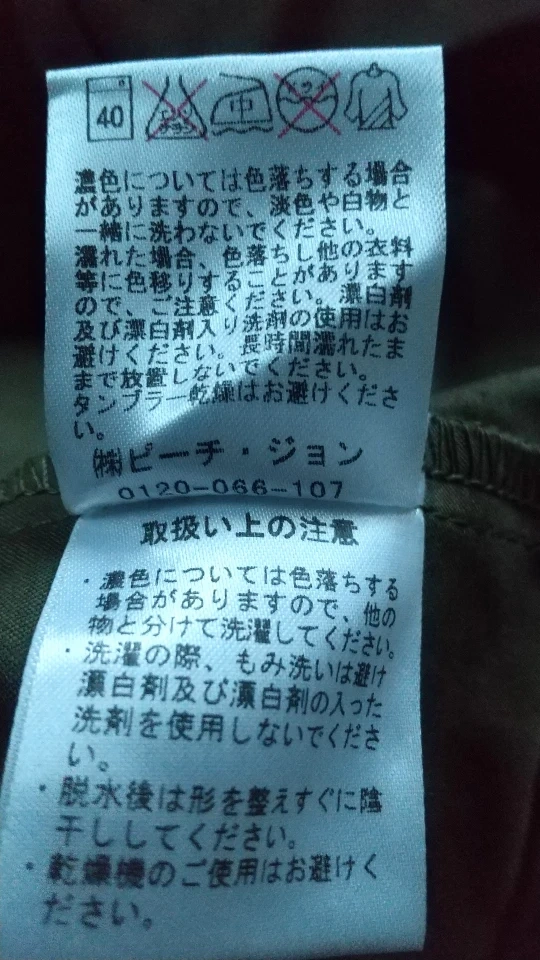 40
エンソ
サラシ
中
ドライ
濃色については色落ちする場合
がありますので、淡色や白物と
一緒に洗わないでください。
濡れた場合、色落ちし他の衣料
等に色移りすることがあります
ので、ご注意ください。漂白剤
及び漂白剤入り洗剤の使用はお
避けください。長時間濡れたま
まで放置しないでください。
タンブラー乾燥はお避けくださ
い。
㈱ピーチ・ジョン
0120-066-107
取扱い上の注意
・濃色については色落ちする
場合がありますので、他の
物と分けて洗濯してください。
・洗濯の際、もみ洗いは避け
漂白剤及び漂白剤の入った
洗剤を使用しないでくださ
い。
・脱水後は形を整えすぐに陰
干ししてください。
・乾燥機のご使用はお避けく
ださい。